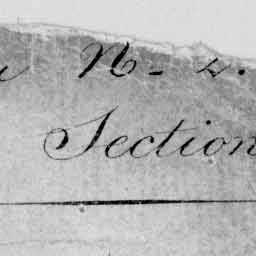 N - 2.
Section